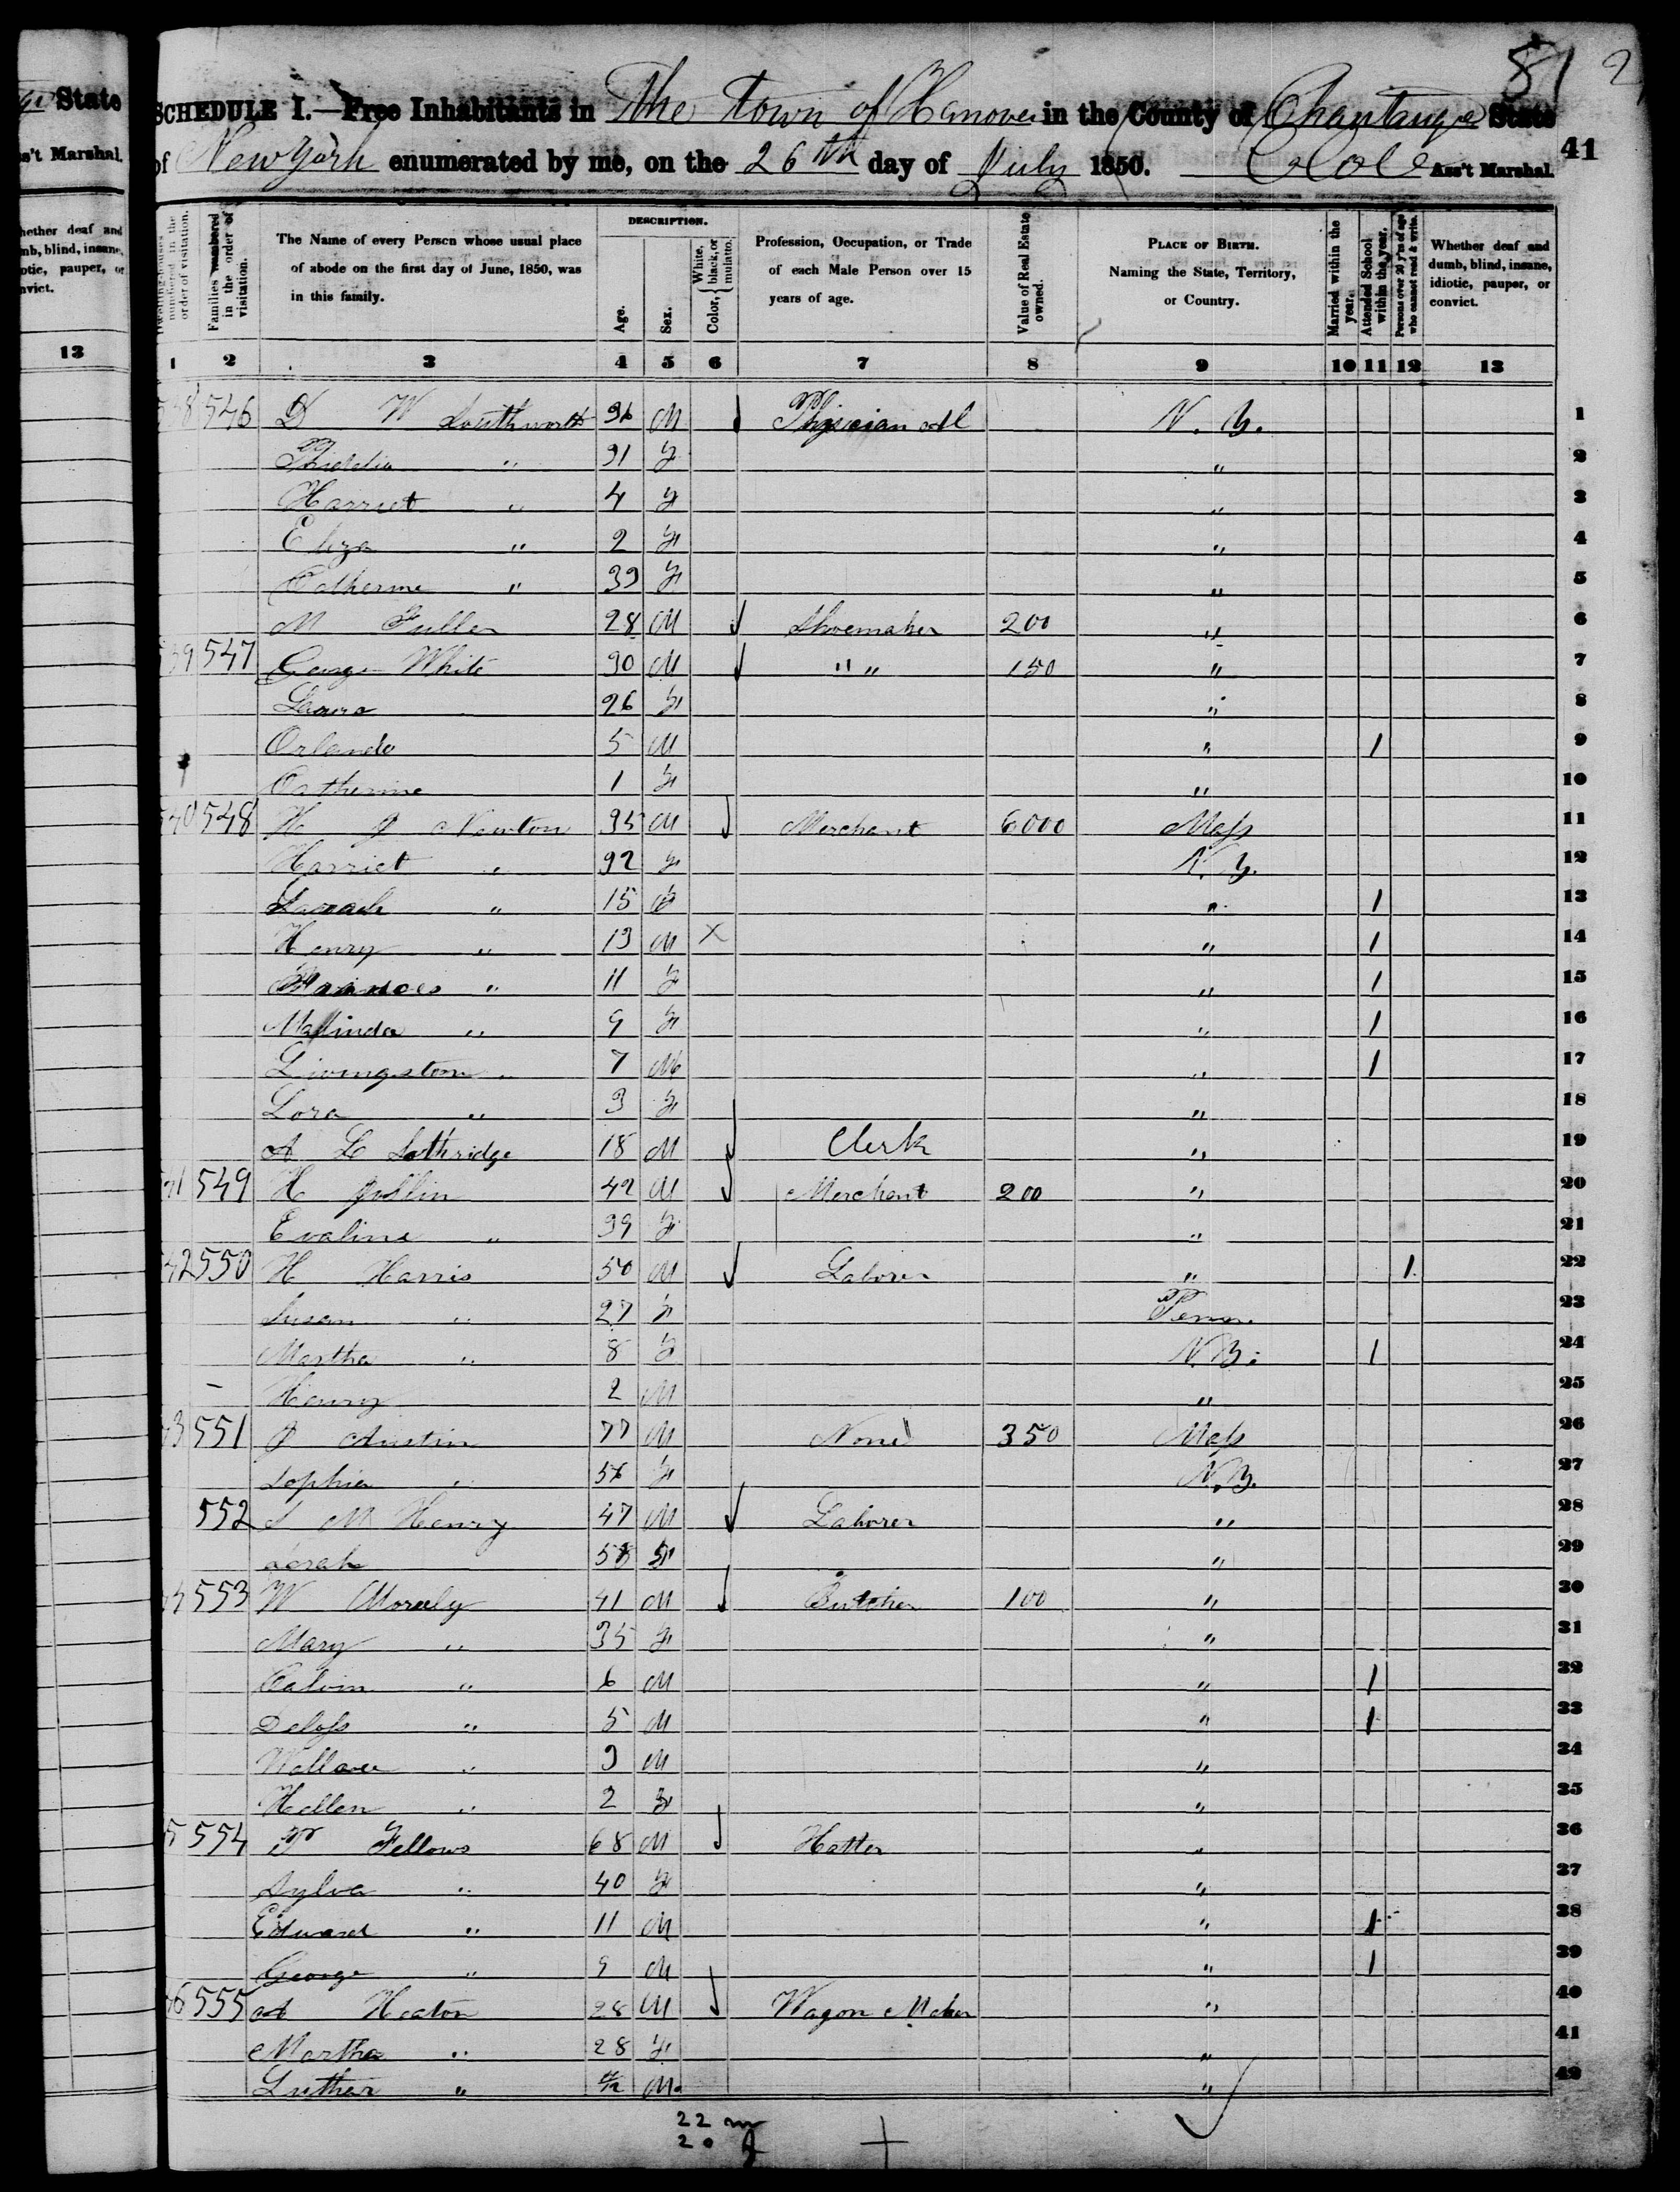 State
ss't Marshal.
hether deaf and
mb, blind, insane,
otic, pauper, or
nvict.
13
81 2
SCHEDULE I.—Free Inhabitants in The Town of Hanover in the County of Chautauque State
of New York enumerated by me, on the 26th day of July 1850. Cole Ass't Marshal.
41
Dwelling-houses numbered in the order of visitation.
Families numbered in the order of visitation.
The Name of every Person whose usual place of abode on the first day of June, 1850, was in this family.
DESCRIPTION.
Age.
Sex.
Color, { White, black, or mulatto.
Profession, Occupation, or Trade of each Male Person over 15 years of age.
Value of Real Estate owned.
PLACE OF BIRTH. Naming the State, Territory, or Country.
Married within the year.
Attended School within the year.
Persons over 20 y'rs of age who cannot read & write.
Whether deaf and dumb, blind, insane, idiotic, pauper, or convict.
1 2 3 4 5 6 7 8 9 10 11 12 13
546 D W Southworth 36 M Physician N. Y. 1
" 31 F " 2
Harriet " 4 F " 3
Eliza " 2 F " 4
Catherine " 39 F " 5
M Fuller 28 M Shoemaker 200 " 6
547 George White 30 M " " 150 " 7
Laura 26 F " 8
Orlando 5 M " 1 9
Catherine 1 F " 10
548 H J Newton 35 M Merchant 6000 Mass 11
Harriet " 32 F N. Y. 12
Sarah " 15 F " 1 13
Henry " 13 M X " 1 14
Frances " 11 F " 1 15
Malinda " 9 F " 1 16
Livingston " 7 M " 1 17
Lora " 3 F " 18
A L Lothridge 18 M Clerk " 19
549 H Joslin 42 M Merchant 200 " 20
Evaline " 39 F " 21
550 H Harris 50 M Laborer " 1 22
Susan " 27 F Penn. 23
Martha " 8 F N. Y. 1 24
Henry 2 M " 25
551 J Austin 77 M None 350 Mass 26
Sophia " 56 F N. Y. 27
552 S M Henry 47 M Laborer " 28
Sarah 58 F " 29
553 W 41 M Butcher 100 " 30
Mary " 35 F " 31
Calvin " 6 M " 1 32
Deloss " 5 M " 1 33
Wallace " 3 M " 34
Hellen " 2 F " 35
554 T Fellows 68 M Hatter " 36
Sylva " 40 F " 37
Edward " 11 M " 1 38
George " 9 M " 1 39
555 A Heaton 28 M Wagon Maker " 40
Martha " 28 F " 41
Luther " M " 42
22 m
20 f